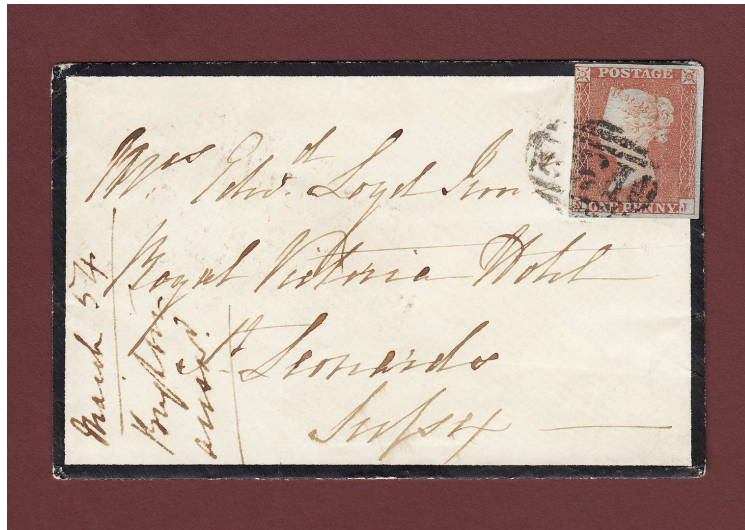 POSTAGE
ONE PENNY
J
Mrs Edwd Loyd Junr
Royal Victoria Hotel
St Leonards
Sussex
March 54
ansd.